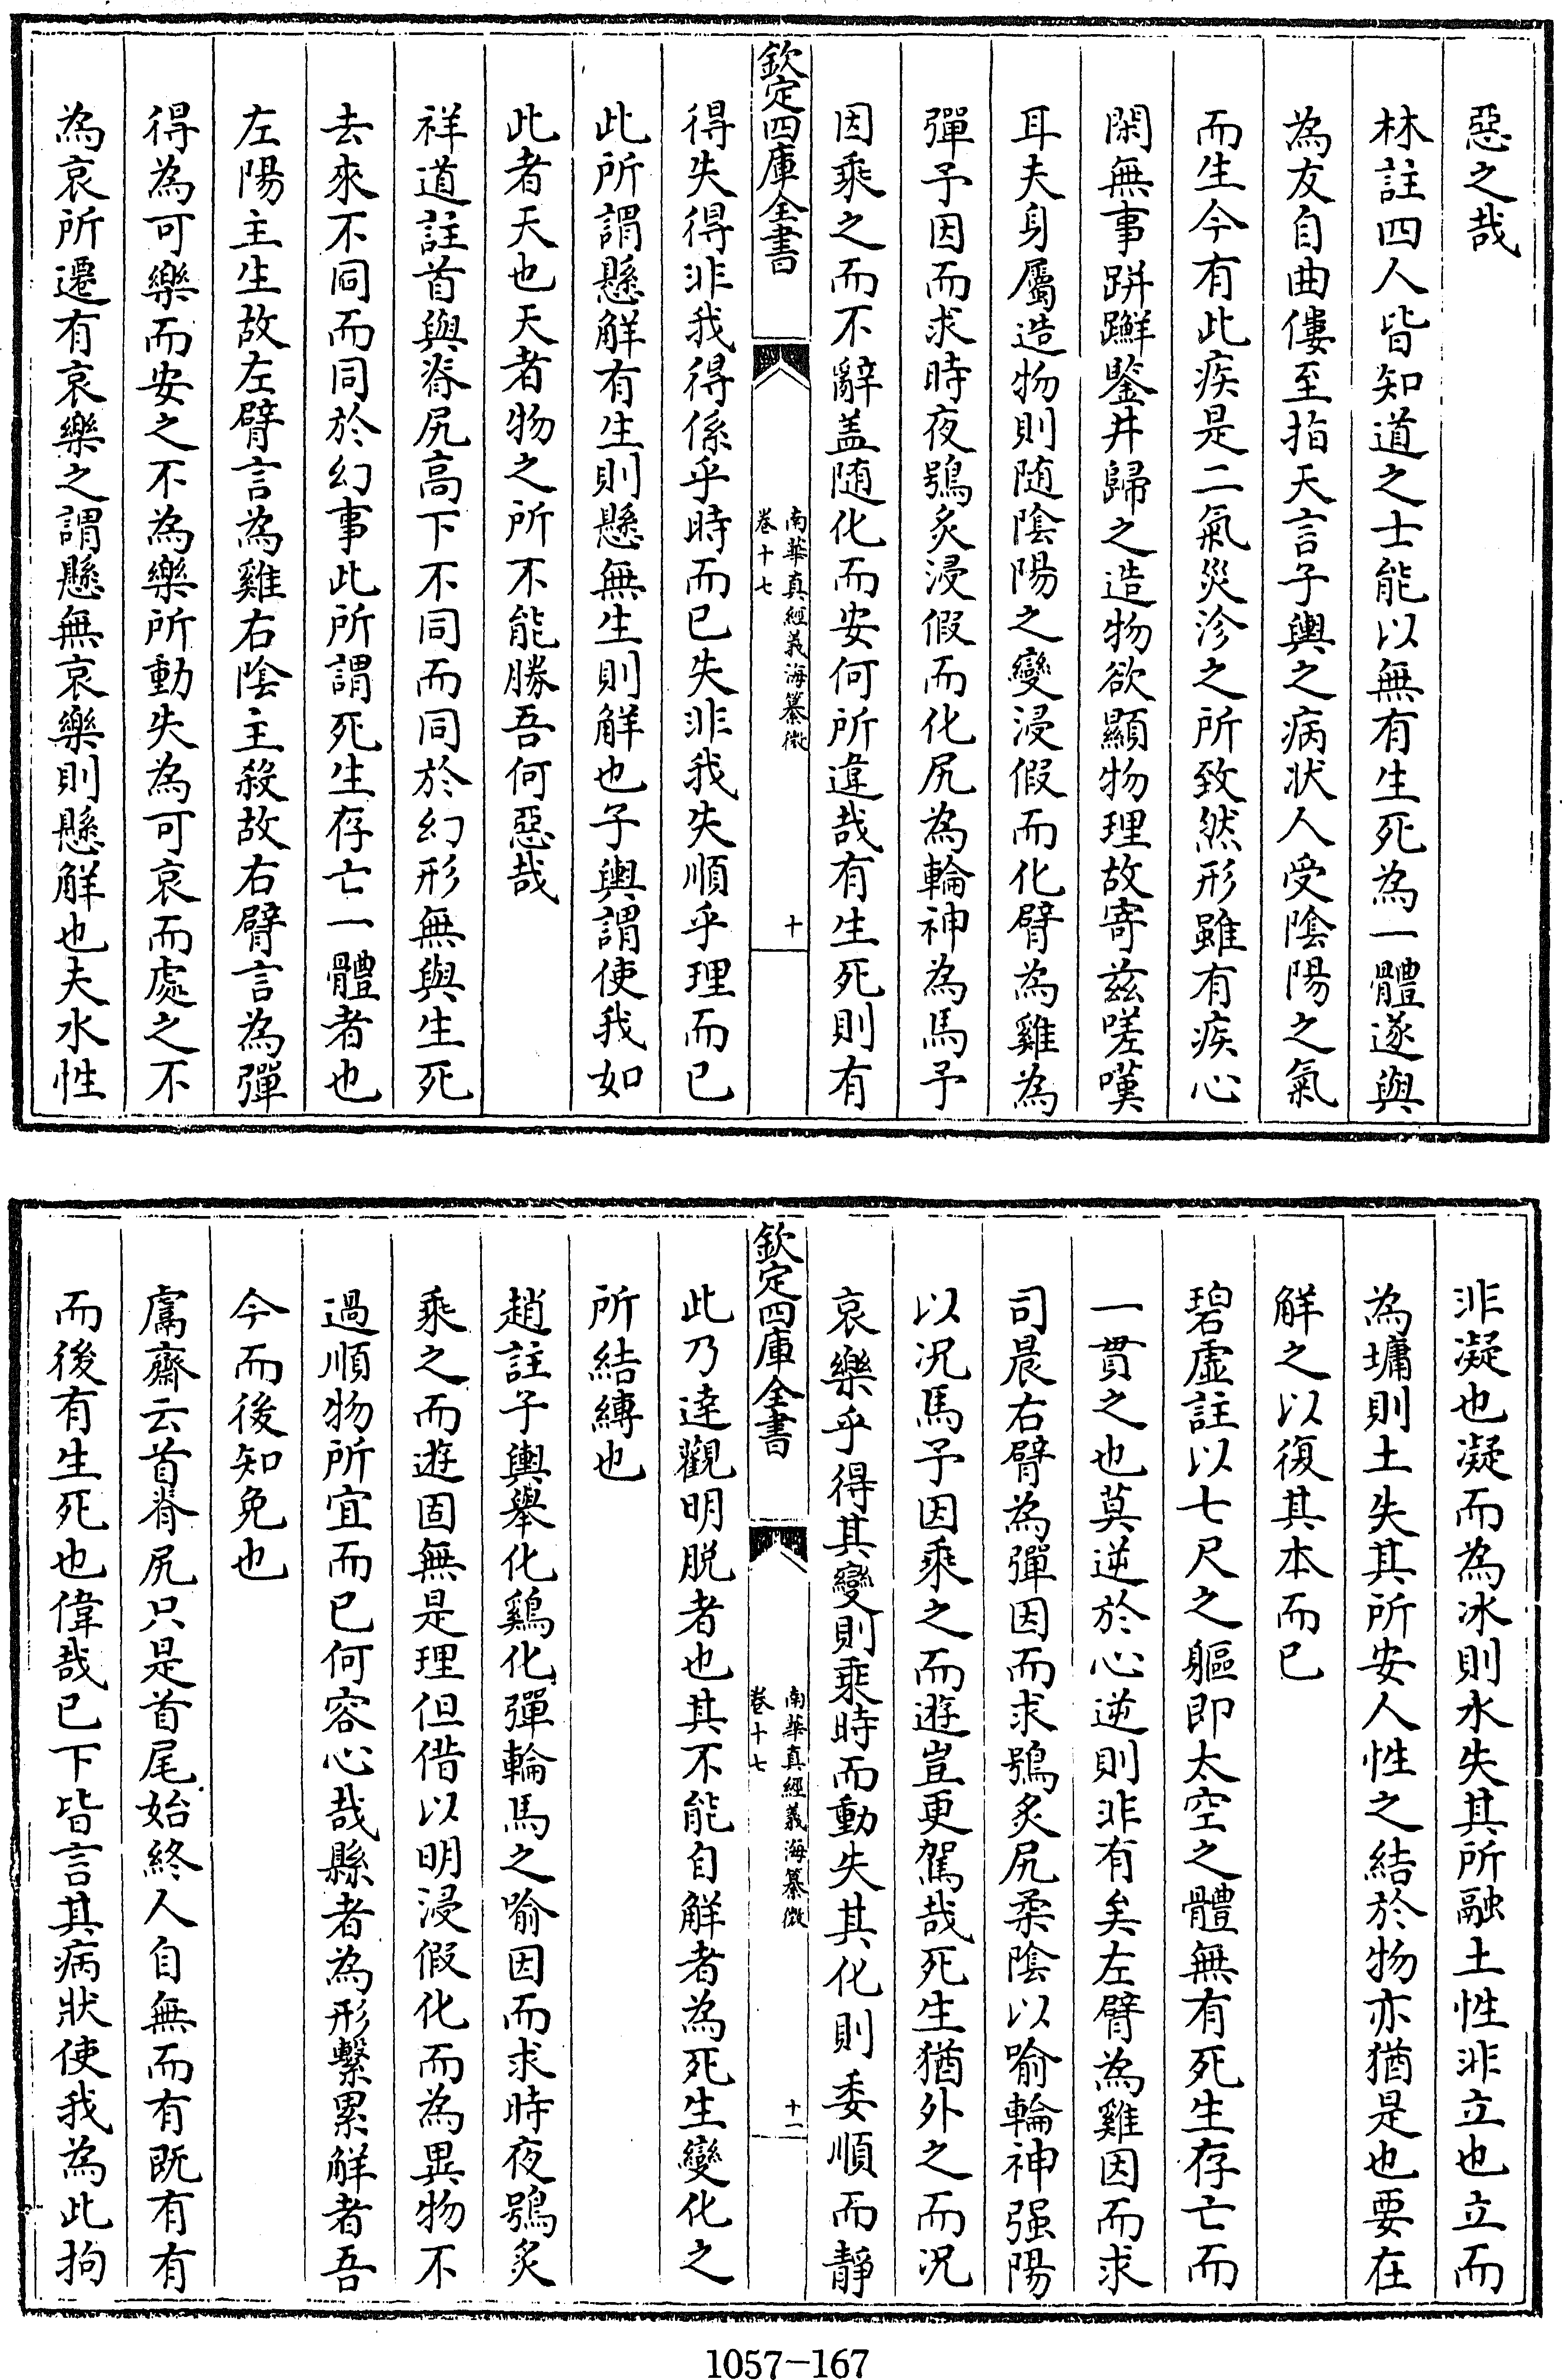 惡之哉
林註四人皆知道之士能以無有生死為一體遂與
為友自曲僂至指天言子輿之病狀人受陰陽之氣
而生今有此疾是二氣災沴之所致然形雖有疾心
閑無事跰𨇤鑒井歸之造物欲顯物理故寄茲嗟嘆
耳夫身屬造物則随陰陽之變浸假而化臂為雞為
彈予因而求時夜鴞炙浸假而化尻為輪神為馬予
因乘之而不辭盖随化而安何所違哉有生死則有
欽定四庫全書
南華真經義海纂微
卷十七
十
得失得非我得係乎時而已失非我失順乎理而已
此所謂懸解有生則懸無生則解也子輿謂使我如
此者天也天者物之所不能勝吾何惡哉
祥道註首與脊尻高下不同而同於幻形無與生死
去來不同而同於幻事此所謂死生存亡一體者也
左陽主生故左臂言為雞右陰主殺故右臂言為彈
得為可樂而安之不為樂所動失為可哀而處之不
為哀所遷有哀樂之謂懸無哀樂則懸解也夫水性
非凝也凝而為冰則水失其所融土性非立也立而
為墉則土失其所安人性之結於物亦猶是也要在
解之以復其本而已
碧虛註以七尺之軀即太空之體無有死生存亡而
一貫之也莫逆於心逆則非有矣左臂為雞因而求
司晨右臂為彈因而求鴞炙尻柔陰以喻輪神强陽
以况馬予因乘之而遊豈更駕哉死生猶外之而况
哀樂乎得其變則乘時而動失其化則委順而靜
欽定四庫全書
南華真經義海纂微
卷十七
十一
此乃達觀明脱者也其不能自解者為死生變化之
所結縛也
趙註子輿舉化鷄化彈輪馬之喻因而求時夜鴞炙
乘之而遊固無是理但借以明浸假化而為異物不
過順物所宜而已何容心哉縣者為形繫累解者吾
今而後知免也
鬳齋云首脊尻只是首尾始終人自無而有既有有
而後有生死也偉哉已下皆言其病狀使我為此拘
1057-167